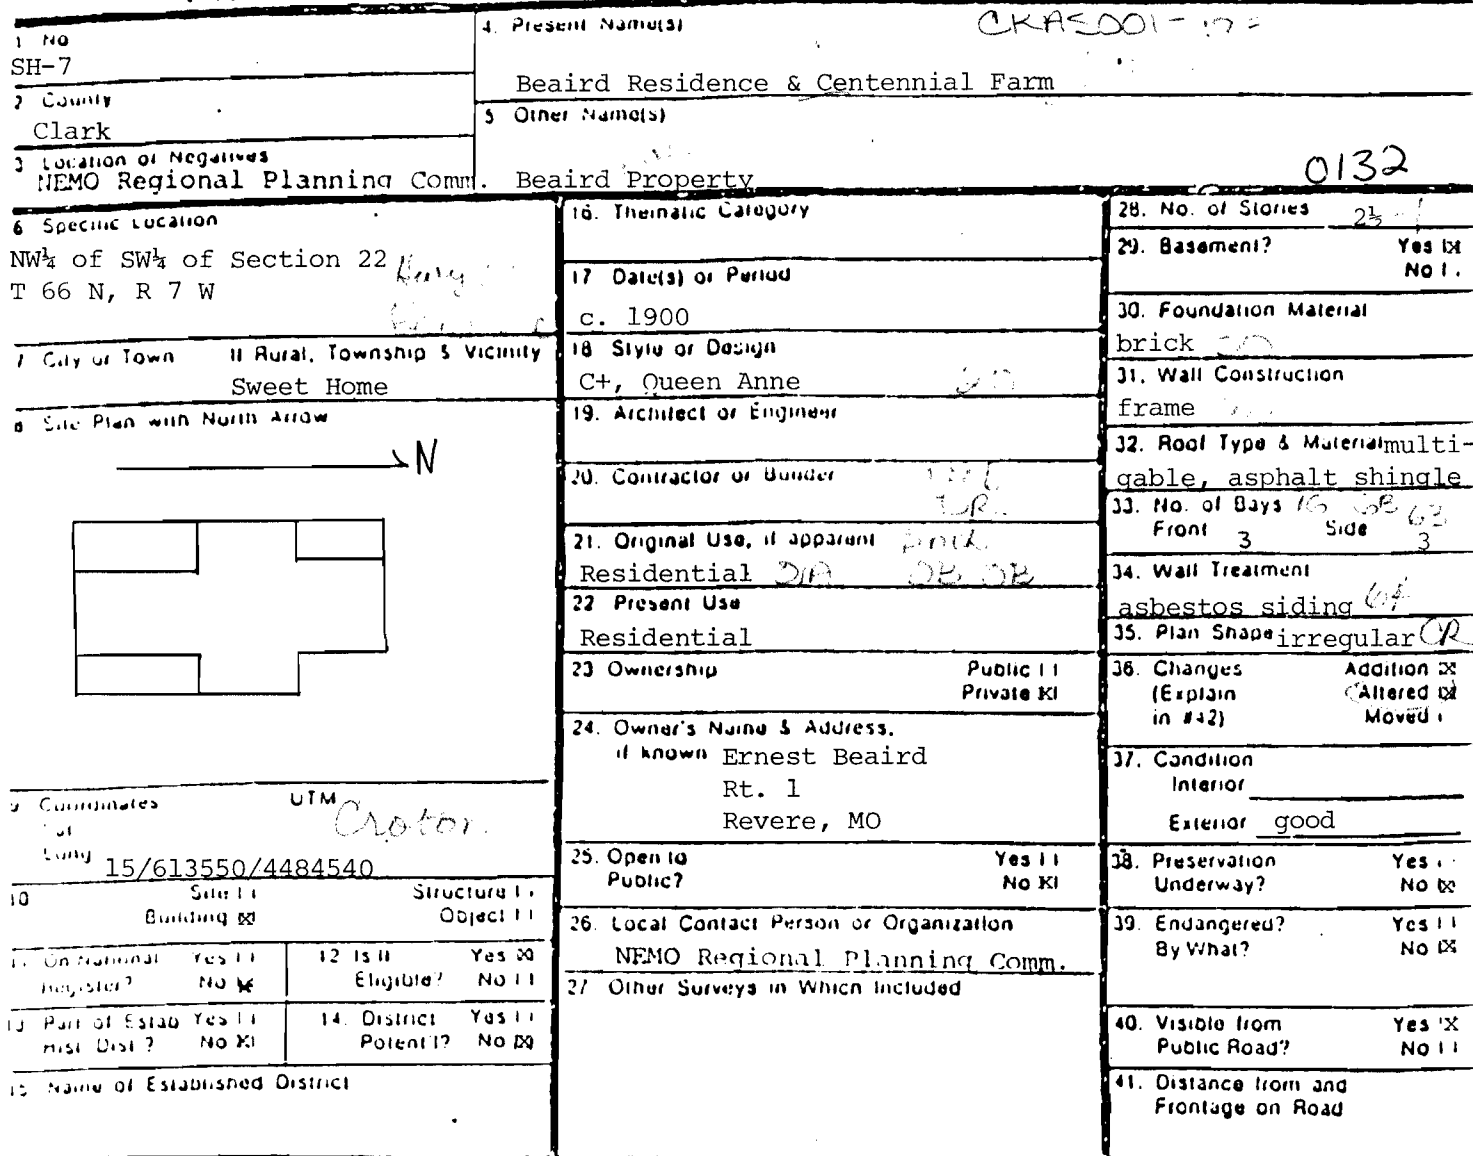 1 No
SH-7
2 County
Clark
3 Location of Negatives
NEMO Regional Planning Comm.
4. Present Name(s)
CKAS001-
Beaird Residence & Centennial Farm
5 Other Name(s)
Beaird Property
0132
6 Specific Location
NW¼ of SW¼ of Section 22
T 66 N, R 7 W
7 City or Town If Rural, Township & Vicinity
Sweet Home
8 Site Plan with North Arrow
N
9 Coordinates UTM
Lat
Long
Croton
15/613550/4484540
10 Site [ ] Structure [ ]
Building [X] Object [ ]
11 On National Register? Yes [ ] No [X]
12 Is It Eligible? Yes [X] No [ ]
13 Part of Estab Hist Dist? Yes [ ] No [X]
14. District Potent'l? Yes [ ] No [X]
15 Name of Established District
16. Thematic Category
17 Date(s) or Period
c. 1900
18 Style or Design
C+, Queen Anne
19. Architect or Engineer
20. Contractor or Builder
21. Original Use, if apparent
Residential
22 Present Use
Residential
23 Ownership Public [ ]
Private [X]
24. Owner's Name & Address,
if known Ernest Beaird
Rt. 1
Revere, MO
25. Open to Yes [ ]
Public? No [X]
26. Local Contact Person or Organization
NEMO Regional Planning Comm.
27 Other Surveys in Which Included
28. No. of Stories 2½
29. Basement? Yes [X]
No [ ]
30. Foundation Material
brick
31. Wall Construction
frame
32. Roof Type & Material multi-
gable, asphalt shingle
33. No. of Bays
Front 3 Side 3
34. Wall Treatment
asbestos siding
35. Plan Shape irregular
36. Changes Addition [X]
(Explain Altered [X]
in #42) Moved [ ]
37. Condition
Interior
Exterior good
38. Preservation Yes [ ]
Underway? No [X]
39. Endangered? Yes [ ]
By What? No [X]
40. Visible from Yes [X]
Public Road? No [ ]
41. Distance from and
Frontage on Road